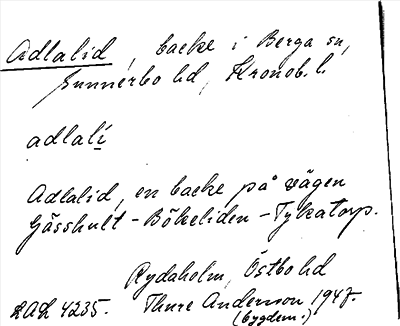 Adlalid, backe i Berga sn,
Sunnerbo hd, Kronob. l.
adlalí
Adlalid, en backe på vägen
Gåsshult - Bökeliden - Tykatorp.
Rydaholm, Östbo hd
Thure Andersson 1947.
(bygdem.)
4235.